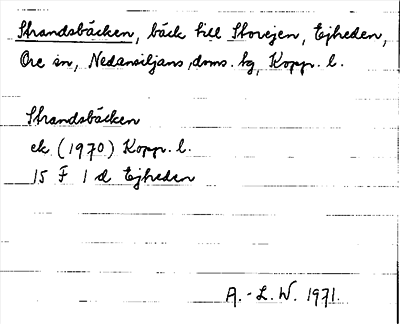 Strandsbäcken, bäck till Storejen, Ejheden,
Ore sn, Nedansiljans dms. hg, Kopp. l.
Strandsbäcken
ek (1970) Kopp. l.
15 F 1 d Ejheden
A.-L. W. 1971.